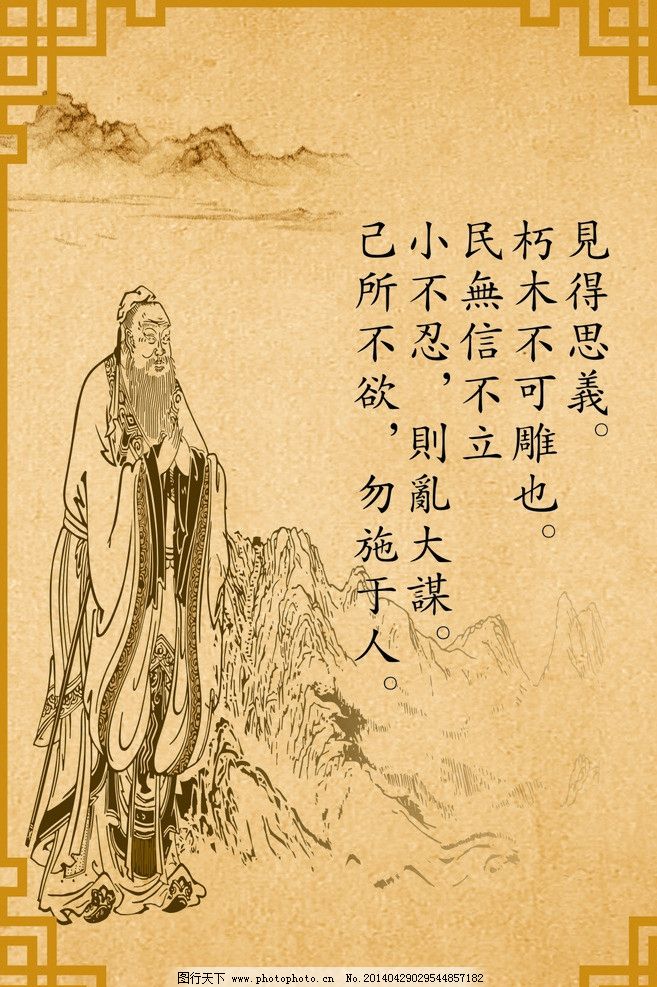 見得思義。
朽木不可雕也。
民無信不立
小不忍，則亂大謀。
己所不欲，勿施于人。
图行天下 www.photophoto.cn No.20140429029544857182